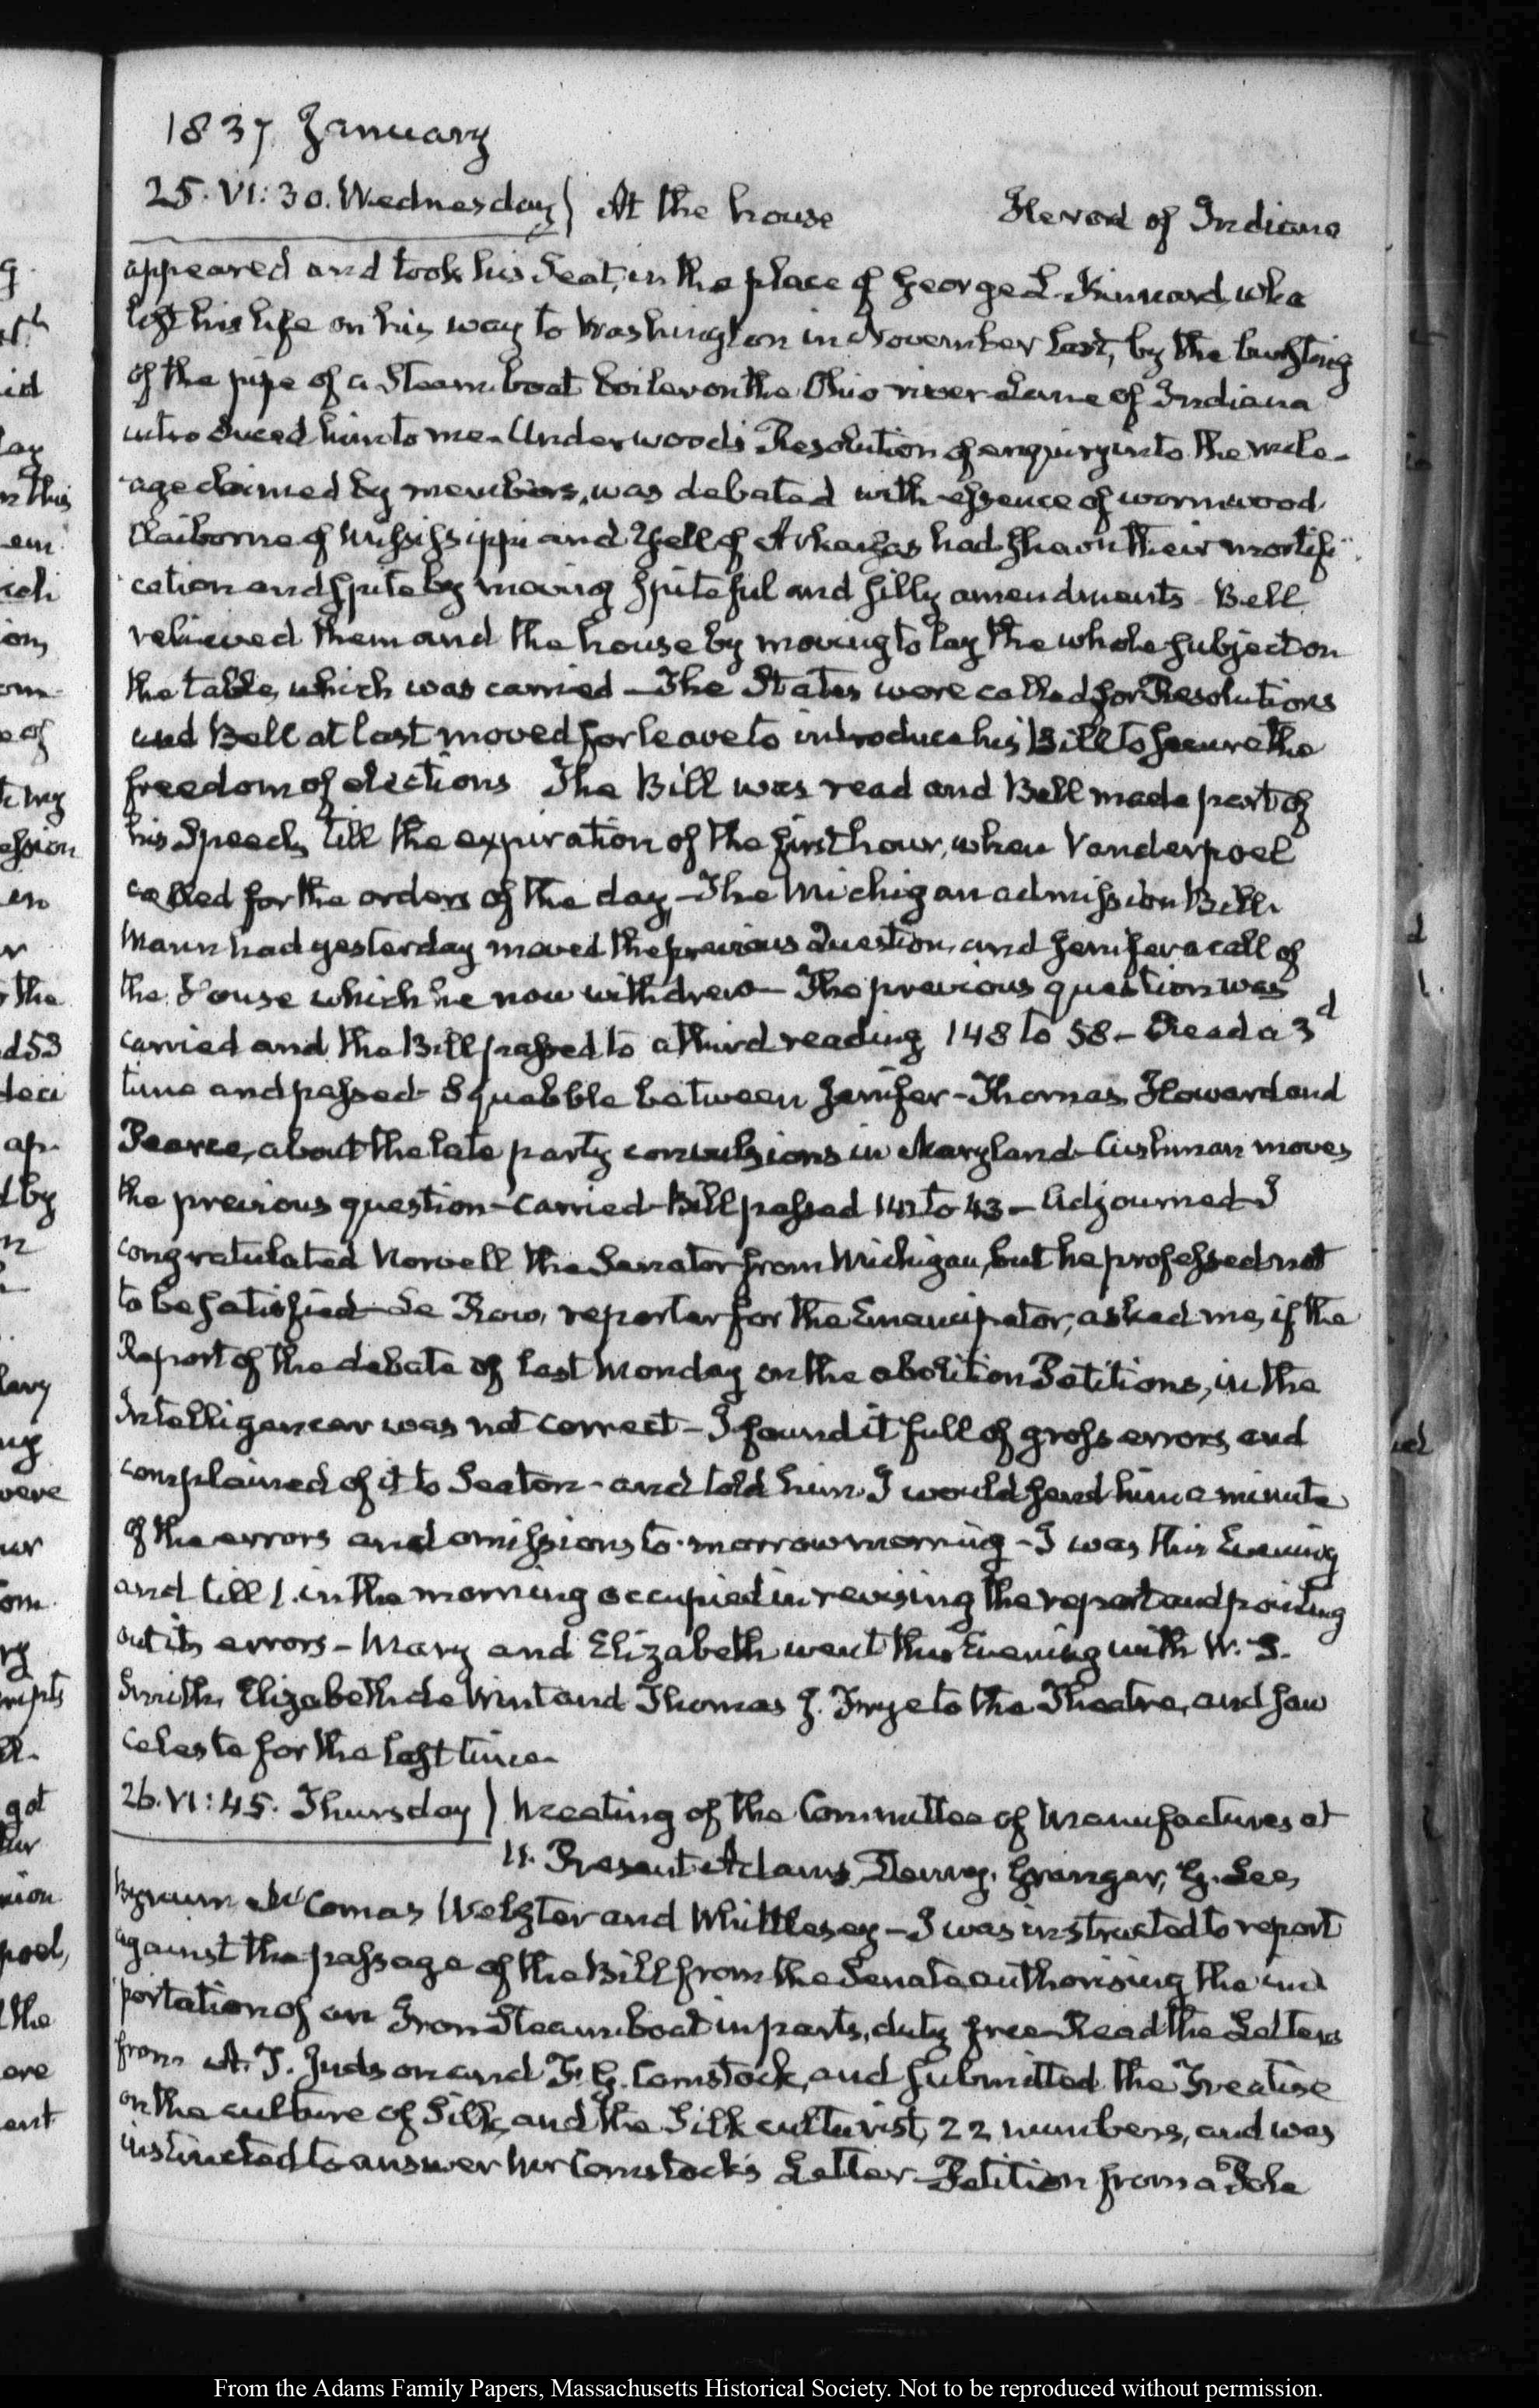 1837. January
25. VI:30. Wednesday) At the house Herod of Indiana
appeared and took his Seat, in the place of George L. Kinnard, who
lost his life on his way to Washington in November last, by the bursting
of the pipe of a Steam-boat boiler on the Ohio river. Lane of Indiana
introduced him to me. Underwood's Resolution of enquiry into the mile-
age claimed by members, was debated with essence of wormwood
Claiborne of Mississippi and Yell of Arkansas had shown their mortifi-
cation and spite by moving spiteful and silly amendments - Bell
relieved them and the house by moving to lay the whole subject on
the table, which was carried - The States were called for Resolutions
and Bell at last moved for leave to introduce his Bill to secure the
freedom of elections The Bill was read and Bell made part of
his Speech till the expiration of the first hour, when Vanderpoel
called for the orders of the day, - The Michigan admission Bill.
Mann had yesterday moved the previous Question, and Jenifer a call of
the House which he now withdrew - The previous question was
carried and the Bill passed to a third reading 148 to 58 - Read a 3d
time and passed - Squabble between Jenifer - Thomas Howard and
Pearce, about the late party convulsions in Maryland - Cushman moves
the previous question - Carried - Bill passed 141 to 43 - Adjourned - I
congratulated Norvell the Senator from Michigan, but he professed not
to be satisfied - Le Row, reporter for the Emancipator, asked me, if the
Report of the debate of last Monday on the abolition Petitions, in the
Intelligencer was not correct - I found it full of gross errors and
complained of it to Seaton - and told him I would send him a minute
of the errors and omissions to-morrow morning - I was this Evening
and till 1. in the morning occupied in revising the report and pointing
out its errors - Mary and Elizabeth went this Evening with W. S.
Smith, Elizabeth de Wint and Thomas J. Frye to the Theatre, and saw
Celeste for the last time.
26. VI:45. Thursday) Meeting of the Committee of Manufactures at
11. Present Adams, Denny, Granger, G. Lee,
Bynum McComas Webster and Whittlesey - I was instructed to report
against the passage of the Bill from the Senate authorising the im
portation of an Iron Steam-boat in parts, duty free - Read the Letters
from A. T. Judson and F. G. Comstock, and submitted the Treatise
on the culture of Silk, and the Silk culturist, 22 numbers, and was
instructed to answer Mr Comstock's Letter - Petition from a Pole
From the Adams Family Papers, Massachusetts Historical Society. Not to be reproduced without permission.